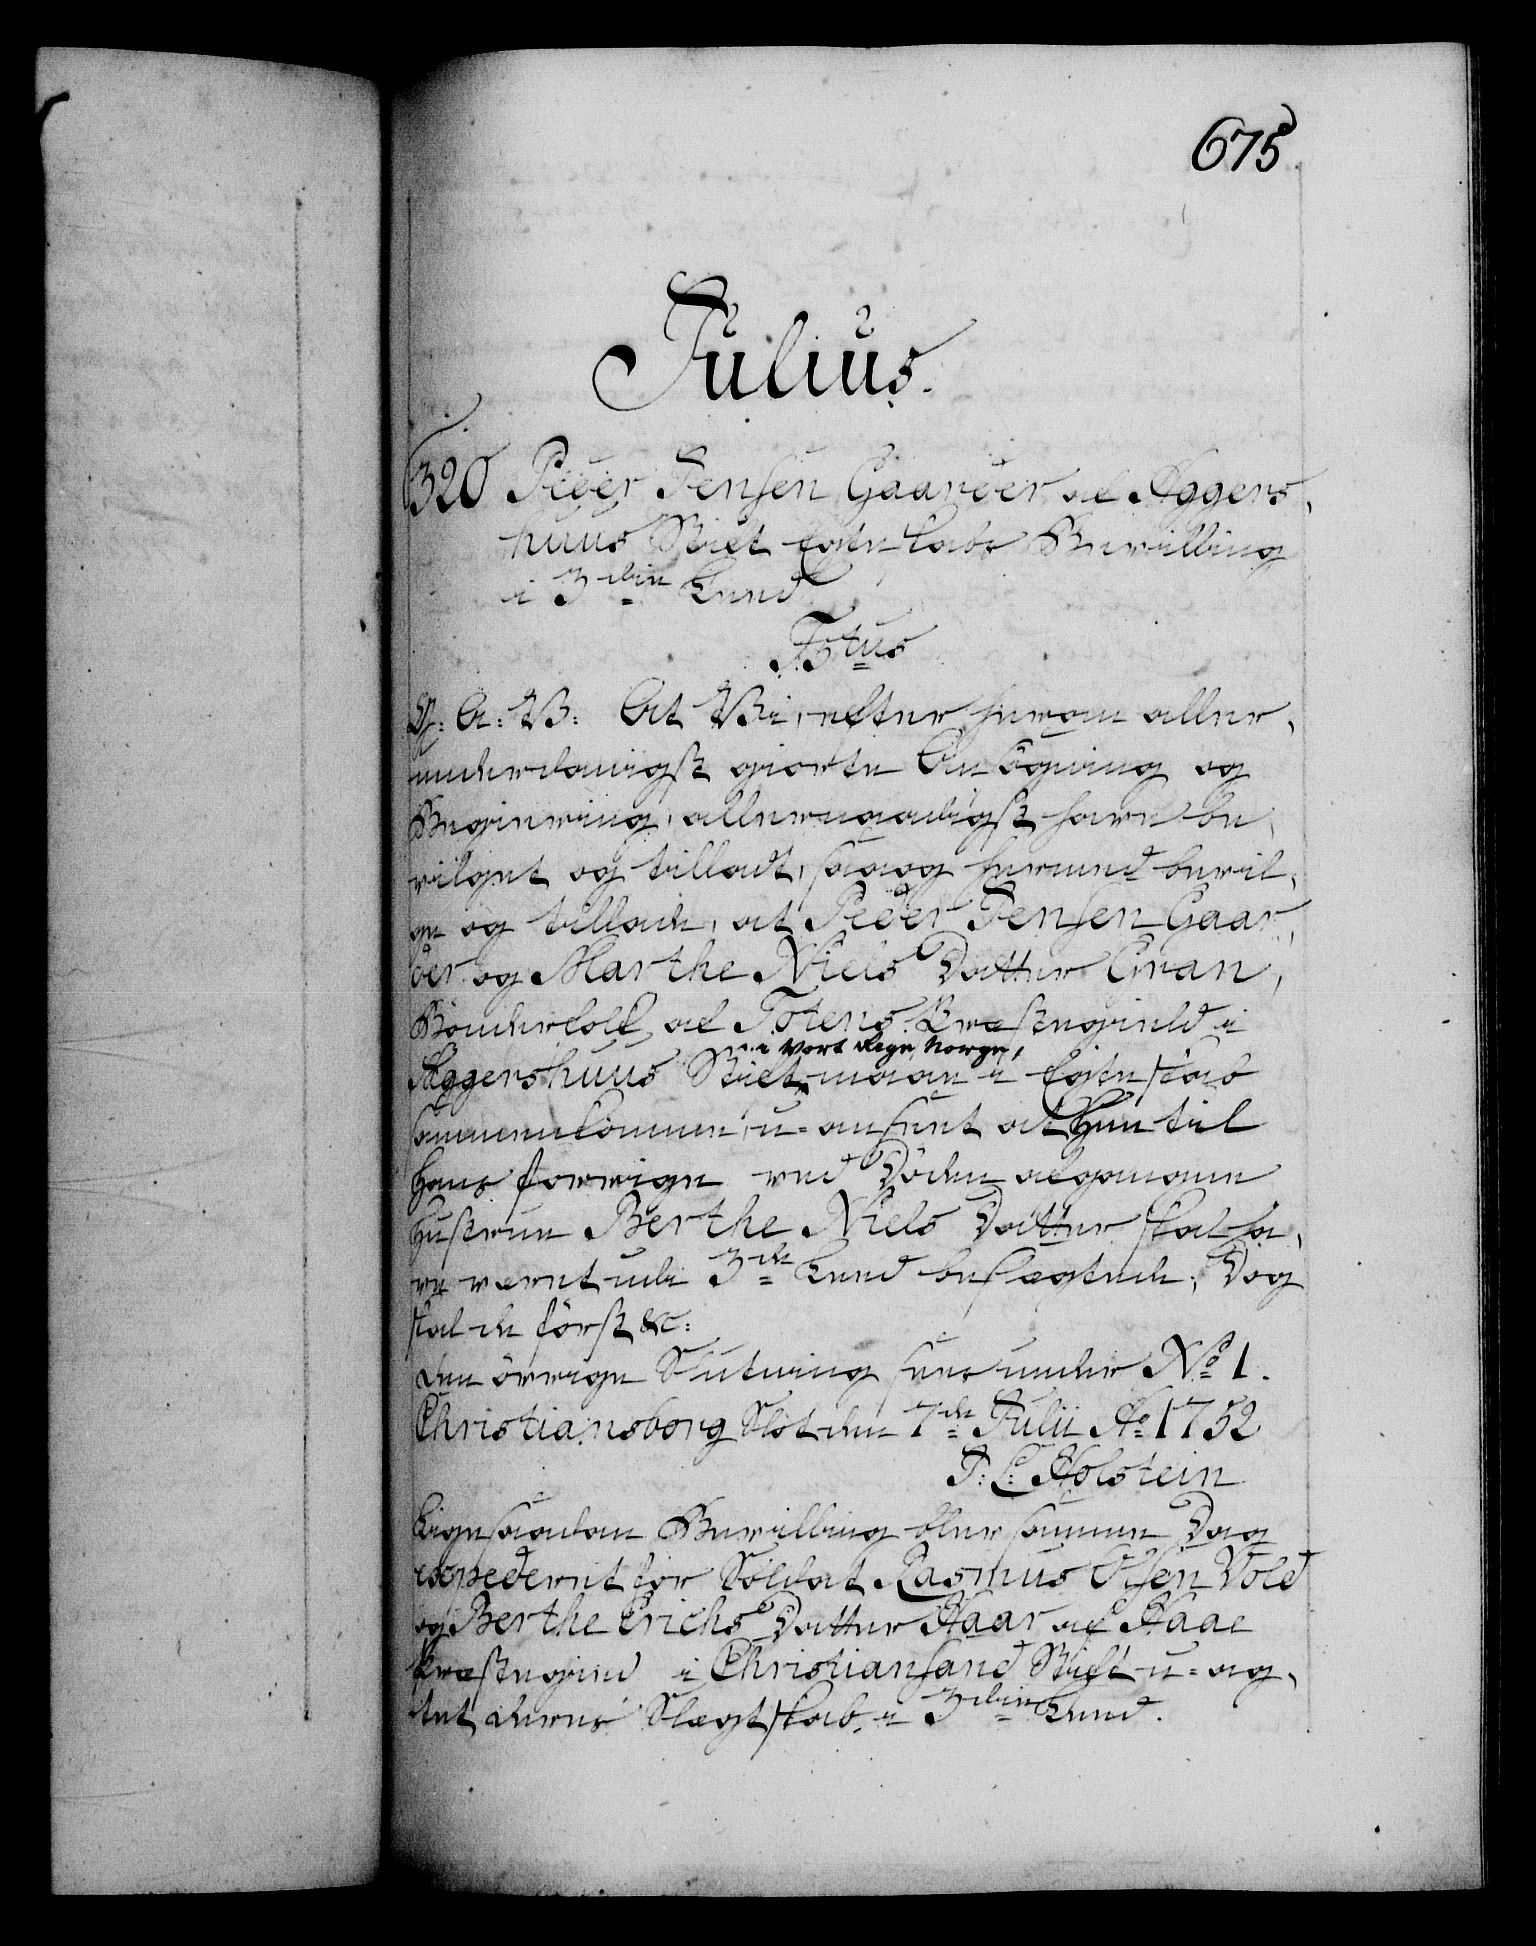 675
Julius.
320 Peder Jensen Gaarder af Aggers,
huus Stift Egteskabs Bevilling
i 3die Leed
F5tus
G: A: V: At Vi, efter herom aller,
underdanigst giorte Ansögning og
Begiering, allernaadigst have be,
vilget og tilladt, saa og hermed bevil,
ge og tillade, at Peder Jensen Gaar,
der og Marthe Niels Datter Evan,
Bönderfolk af Totens Præstegield i
Aggershuus Stift i Vort Rige Norge, maae i Egteskab
sammenkomme, u-anseet at Hun til
hans forrige ved Döden afgangne
Hustrue Berthe Niels Datter skal ha,
ve været udi 3die Leed beslægtede, Dog
skal de först &c:
den övrige Slutning sees under No 1.
Christiansborg Slot den 7de Julii Ao 1752
J: L: Holstein
Ligesaadan Bevilling blev samme Dag
expederet for Soldat Rasmus Olsen Vold
og Berthe Erichs Datter Haar af Haae
Præstegield i Christiansand Stift u-ag,
tet deres Slægtskab i 3die Leed.